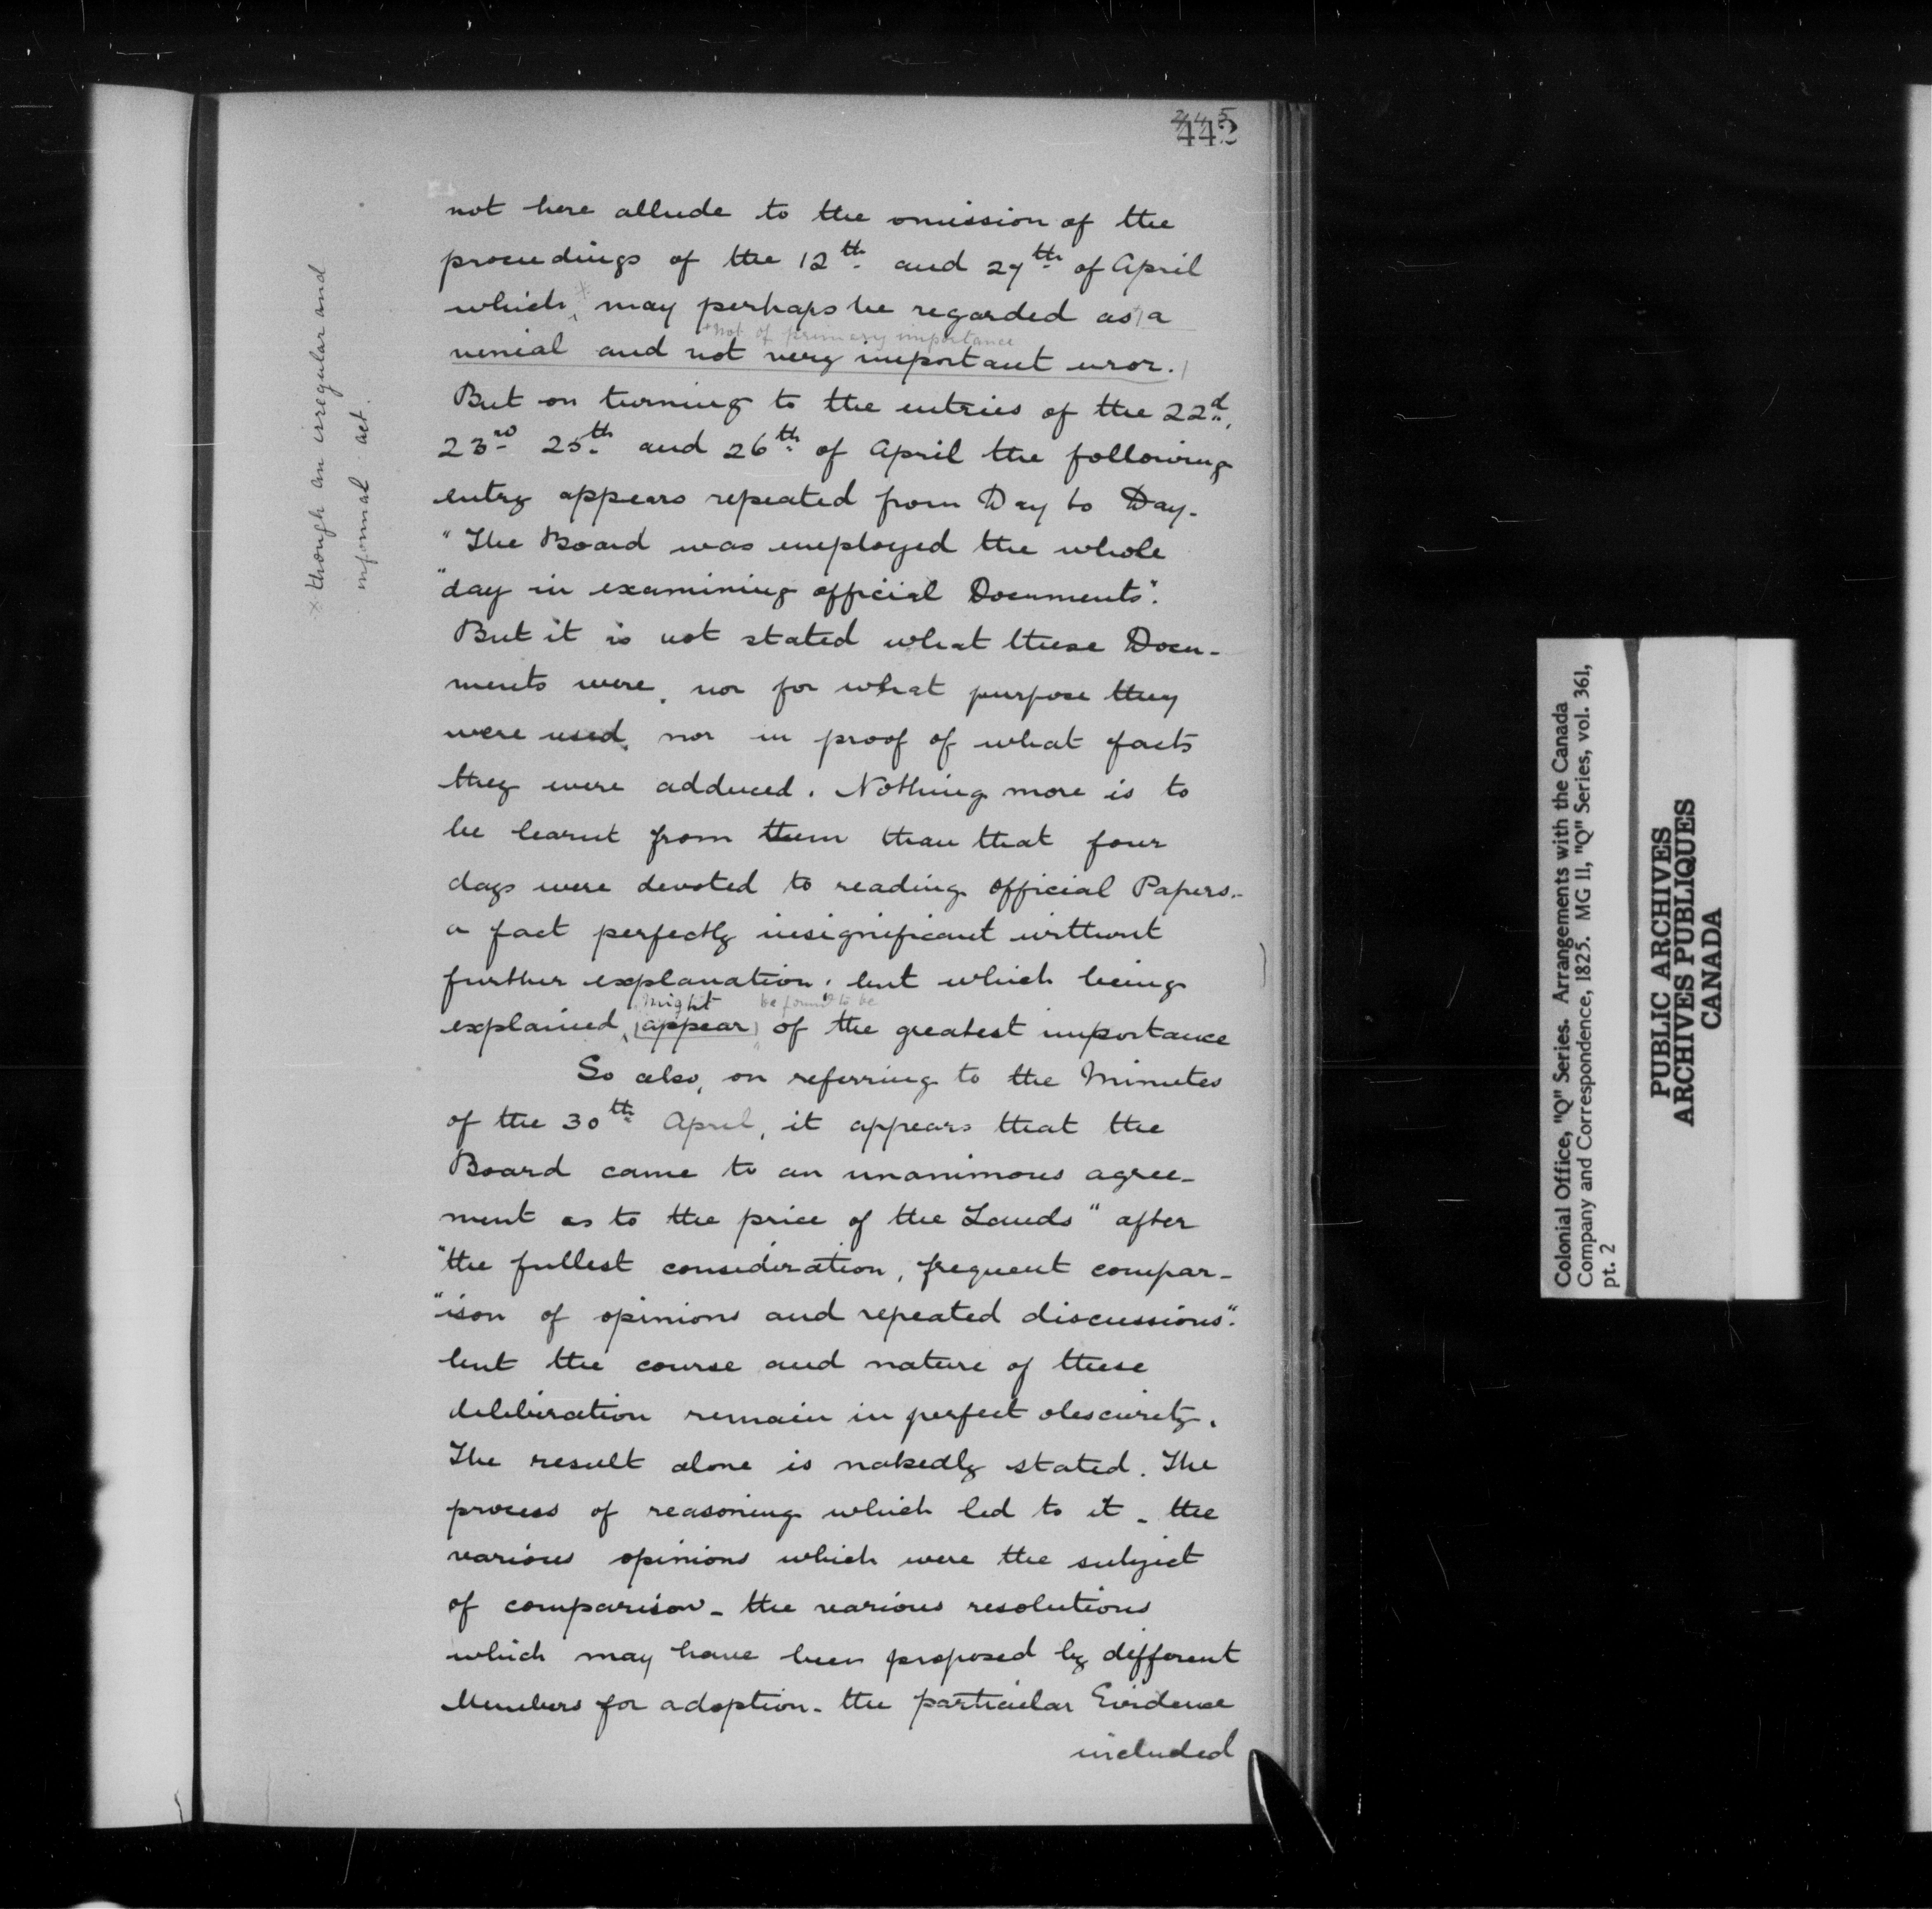 442
445
not here allude to the omission of the
proceedings of the 12th and 27th of April
which × may perhaps be regarded as a
not of primary importance
venial and not very important error.
But on turning to the entries of the 22d,
23rd 25th and 26th of April the following
entry appears repeated from Day to Day-
"The Board was employed the whole
"day in examining official Documents".
But it is not stated what these Docu-
ments were, nor for what purpose they
were used, nor in proof of what facts
they were adduced. Nothing more is to
be learnt from them than that four
days were devoted to reading official Papers.-
a fact perfectly insignificant without
further explanation, but which being
might be found to be
explained, (appear) of the greatest importance
So also, on referring to the Minutes
of the 30th April, it appears that the
Board came to an unanimous agree-
ment as to the price of the Lands "after
"the fullest consideration, frequent compar-
"ison of opinions and repeated discussions".
but the course and nature of these
deliberation remain in perfect obscurity.
The result alone is nakedly stated. The
process of reasoning which led to it - the
various opinions which were the subject
of comparison - the various resolutions
which may have been proposed by different
Members for adoption - the particular Evidence
included
× though an irregular and
informal act.
Colonial Office, "Q" Series. Arrangements with the Canada
Company and Correspondence, 1825. MG 11, "Q" Series, vol. 361,
pt. 2
PUBLIC ARCHIVES
ARCHIVES PUBLIQUES
CANADA